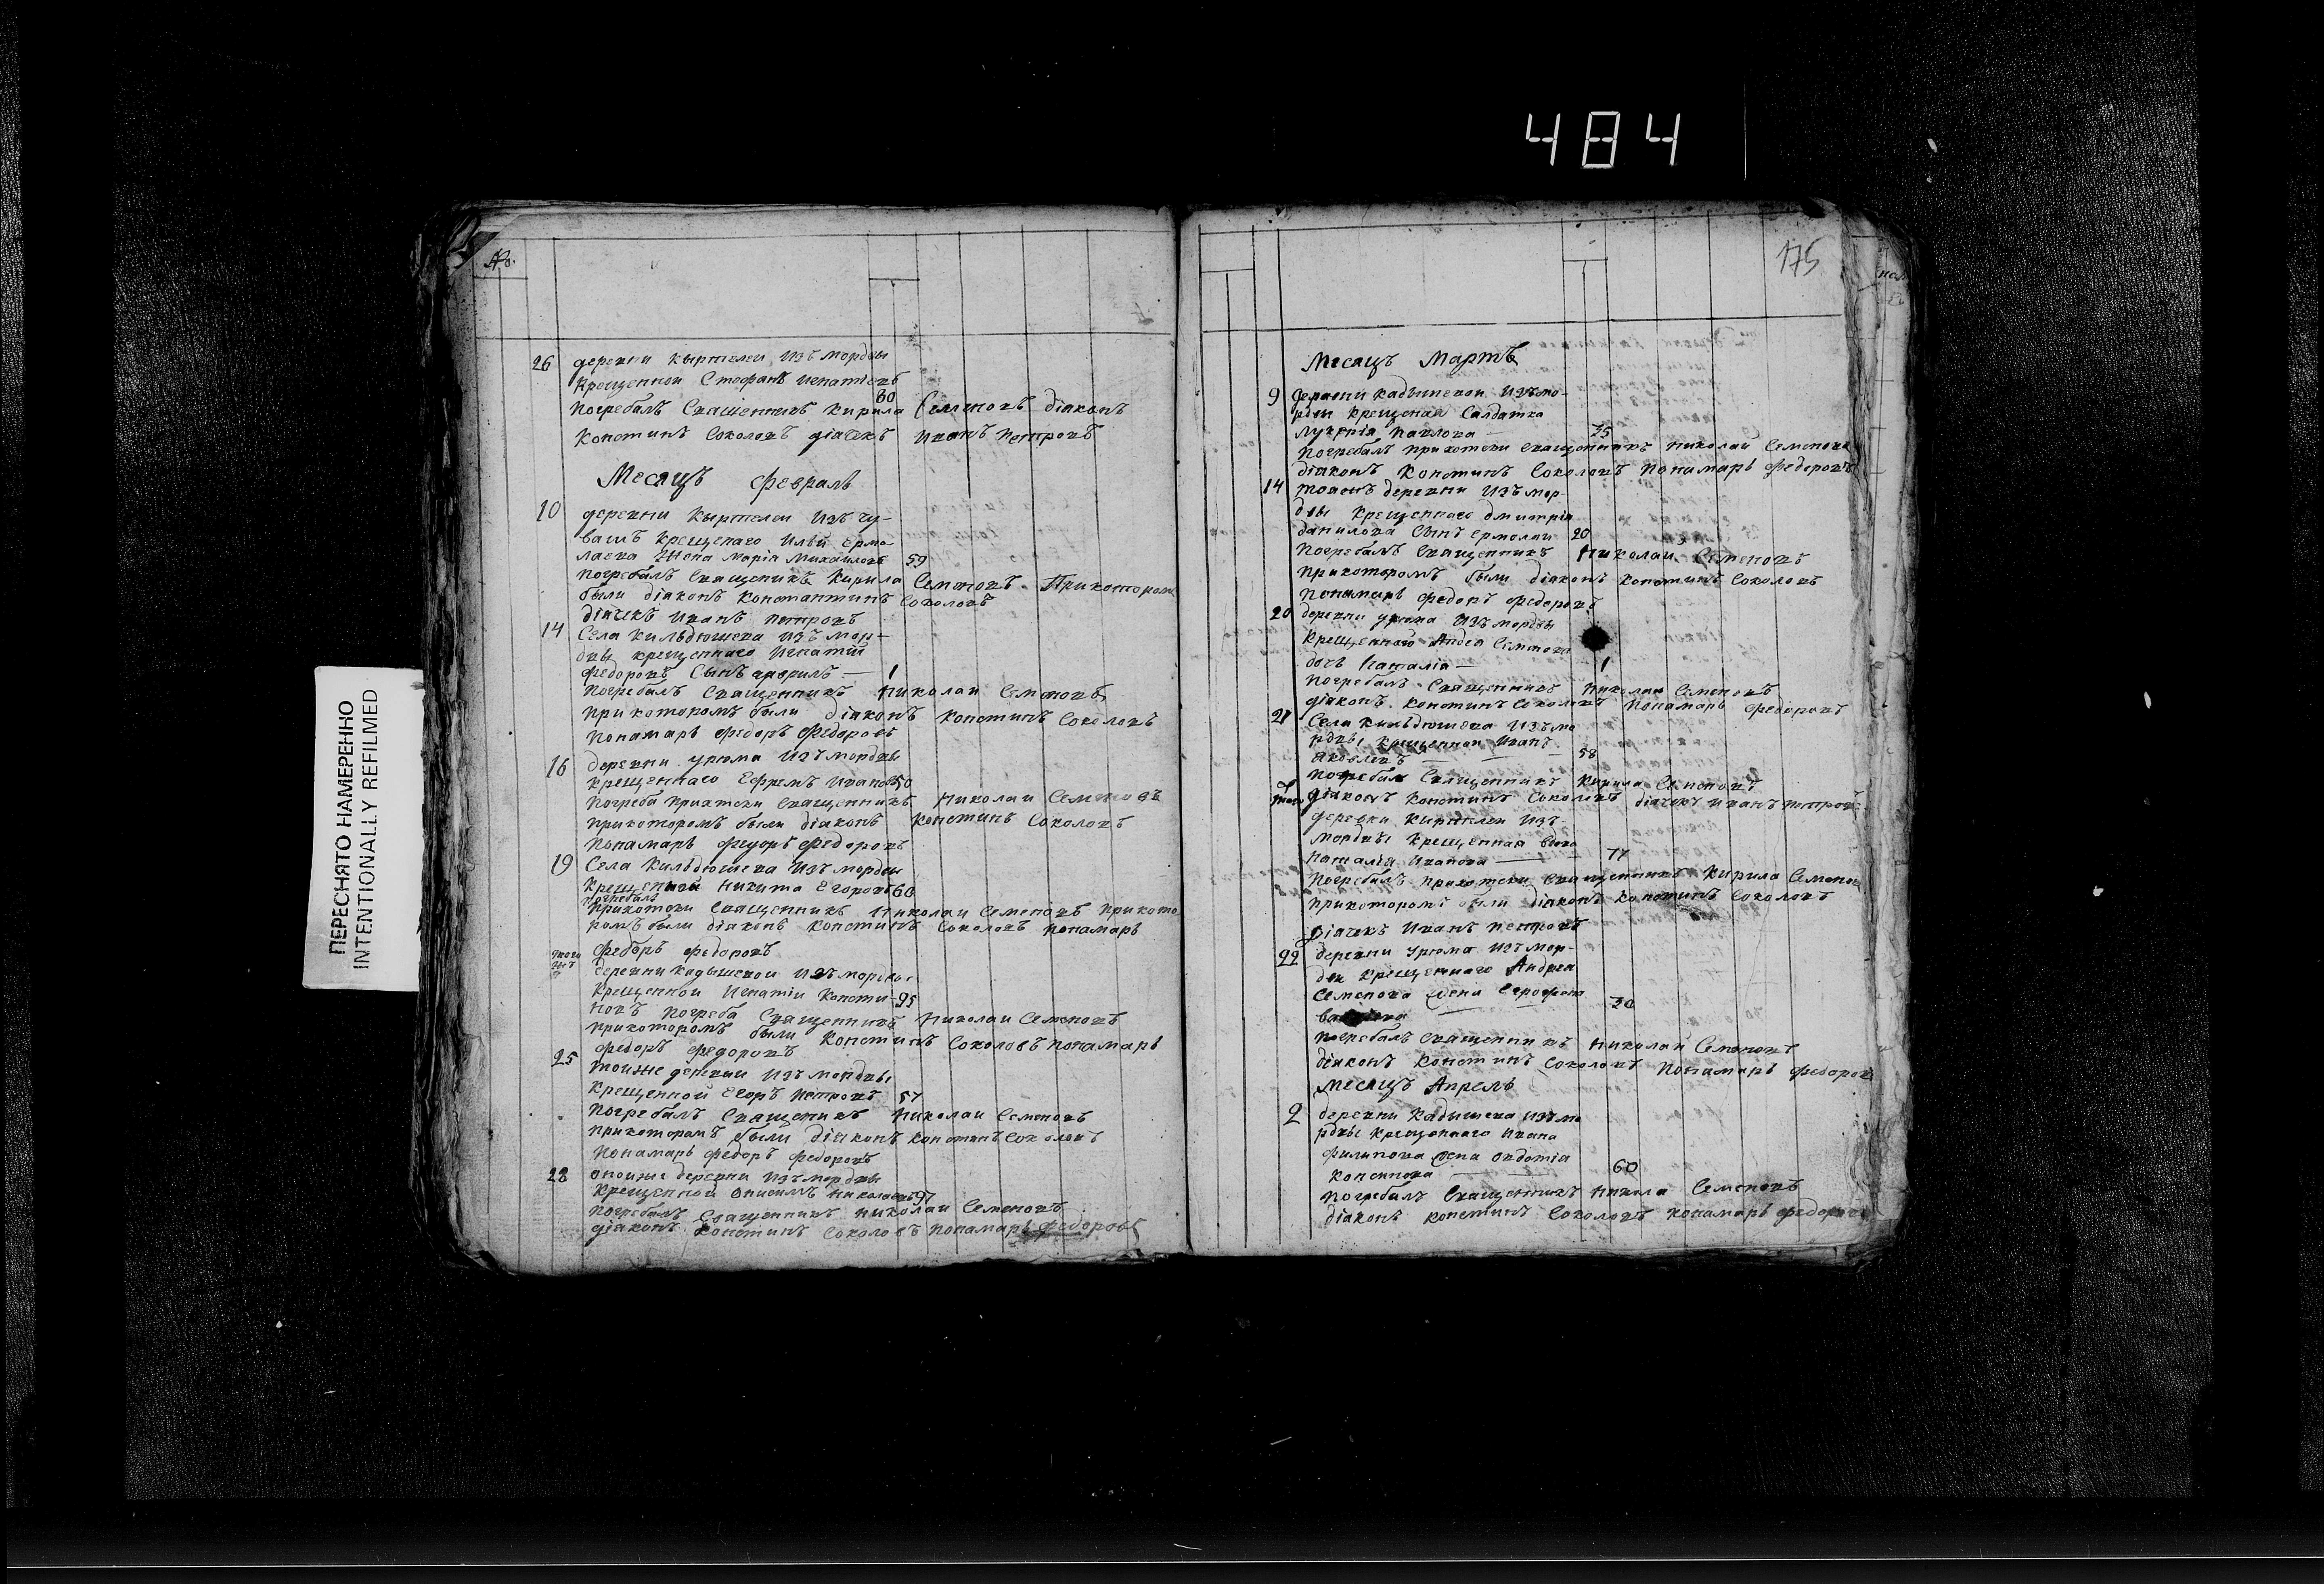 484
175
ПЕРЕСНЯТО НАМЕРЕННО
INTENTIONALLY REFILMED
26 деревни Кыртелеи Изъ мордвы
крещенной Стефанъ Игнатіевъ 60
погребалъ Священникъ Кирила Семеновъ діаконъ
Констинъ Соколовъ діачекъ Иванъ Петровъ
Месяцъ Февраль
10 деревни Кыртелеи Изъ чу-
вашъ крещенаго Ильи Ермо
лаева Жена Марія Михайлова 59
погребалъ Священикъ Кирила Семеновъ Прикотором
были діаконъ Константинъ Соколовъ
діачекъ Иванъ Петровъ
14 Села Кильдюшева Изъ мор-
двы крещеннаго Игнатій
Федоровъ Сынъ Гаврилъ 1
погребалъ Священникъ Николаи Семеновъ
прикоторомъ были діаконъ Констинъ Соколовъ
Понамарь Федоръ Федоровъ
16 деревни Урюма Изъ мордвы
крещеннаго Ефремъ Ивановъ 50
погреба Священникъ Николаи Семеновъ
прикоторомъ были діаконъ Констинъ Соколовъ
понамарь Федоръ Федоровъ
19 Села Кильдюшева Изъ мордвы
крещенной Никита Егоровъ 60
погребалъ
Священникъ Николаи Семеновъ прикото
ромъ были діаконъ Констинъ Соколовъ понамарь
Федоръ Федоровъ
деревни Кадышевой Изъ мордвы
крещенной Игнатіи Консти- 95
новъ погреба Священникъ Николаи Семеновъ
прикоторомъ были Констинъ Соколовъ понамарь
Федоръ Федоровъ
25 тойже деревни Изъ мордвы
крещенной Егоръ Петровъ 57
погребалъ Священикъ Николаи Семеновъ
прикоторомъ были діаконъ Констинъ Соколовъ
понамарь Федоръ Федоровъ
28 оной же деревни Изъ мордвы
крещенной Онисимъ Николаевъ 97
погребалъ Священникъ Николаи Семеновъ
діаконъ Констинъ Соколовъ понамарь Федоровъ
Месяцъ Мартъ
9 деревни Кадышевой Изъ мо-
рдвы крещеная Салдатка
Лукерія Павлова 35
погребалъ Священникъ Николаи Семеновъ
діаконъ Констинъ Соколовъ понамарь Федоровъ
14 деревни Изъ мор-
двы крещеннаго Дмитрія
Данилова Сынъ Ермолаи 20
погребалъ Священникъ Николаи Семеновъ
прикоторомъ были діаконъ Констинъ Соколовъ
понамарь Федоръ Федоровъ
20 деревни Урюма Изъ мордвы
крещеннаго Андея Семенова
дочь Наталія 1
погребалъ Священникъ Николаи Семеновъ
діаконъ Констинъ Соколовъ понамарь Федоровъ
21 Села Кильдюшева Изъ мо
рдвы крещенной Иванъ
Яковлевъ 58
погребалъ Священникъ Кирила Семеновъ
діаконъ Констинъ Соколовъ діачекъ Иванъ Петровъ
деревни Киртелеи Изъ-
мордвы крещенная вдова
Наталія Иванова 77
погребалъ Священникъ Кирила Семенов
прикоторомъ были діаконъ Констинъ Соколовъ
діачекъ Иванъ Петровъ
22 деревни Урюма Изъ мор-
двы крещеннаго Андрея
Семенова жена 30
погребалъ Священникъ Николаи Семеновъ
діаконъ Констинъ Соколовъ понамарь Федоров
Месяцъ Апрель
2 деревни Кадышева Изъ мо
рдвы крещеннаго Ивана
Филипова жена Овдотія
60
погребалъ Священникъ Никола Семеновъ
діаконъ Констинъ Соколовъ понамарь Федоровъ